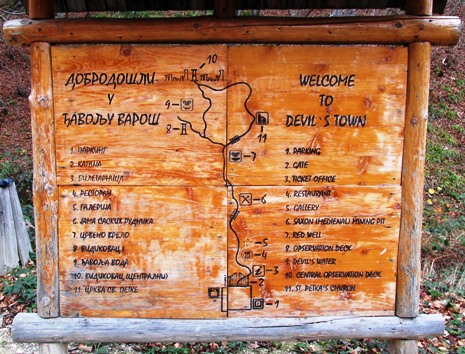 ДОБРОДОШЛИ
У
ЂАВОЉУ ВАРОШ
1. ПАРКИНГ
2. КАПИЈА
3. БИЛЕТАРНИЦА
4. РЕСТОРАН
5. ГАЛЕРИЈА
6. ЈАМА САСКИХ РУДНИКА
7. ЦРВЕНО ВРЕЛО
8. ВИДИКОВАЦ
9. ЂАВОЉА ВОДА
10. ВИДИКОВАЦ (ЦЕНТРАЛНИ)
11. ЦРКВА СВ. ПЕТКЕ
10
9
8
11
7
6
5
4
3
2
1
WELCOME
TO
DEVIL'S TOWN
1. PARKING
2. GATE
3. TICKET OFFICE
4. RESTAURANT
5. GALLERY
6. SAXON (MEDIEVAL) MINING PIT
7. RED WELL
8. OBSERVATION DECK
9. DEVIL'S WATER
10. CENTRAL OBSERVATION DECK
11. ST. PETKA'S CHURCH